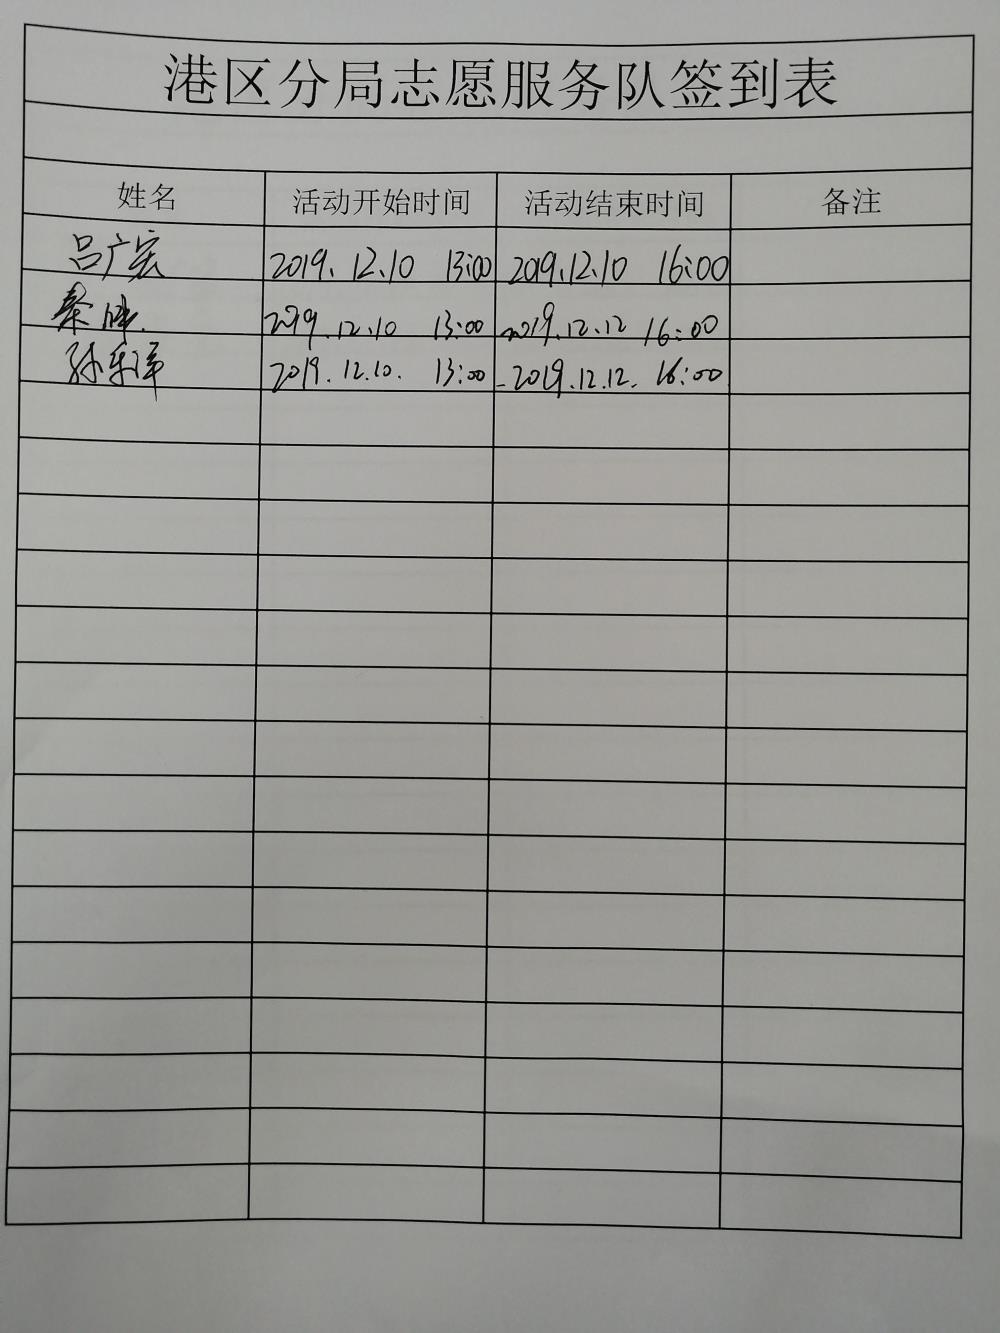 港区分局志愿服务队签到表
姓名 活动开始时间 活动结束时间 备注
吕广宏 2019.12.10 13:00 2019.12.10 16:00
秦 2019.12.10 13:00 2019.12.12 16:00
孙 2019.12.10. 13:00 2019.12.12. 16:00